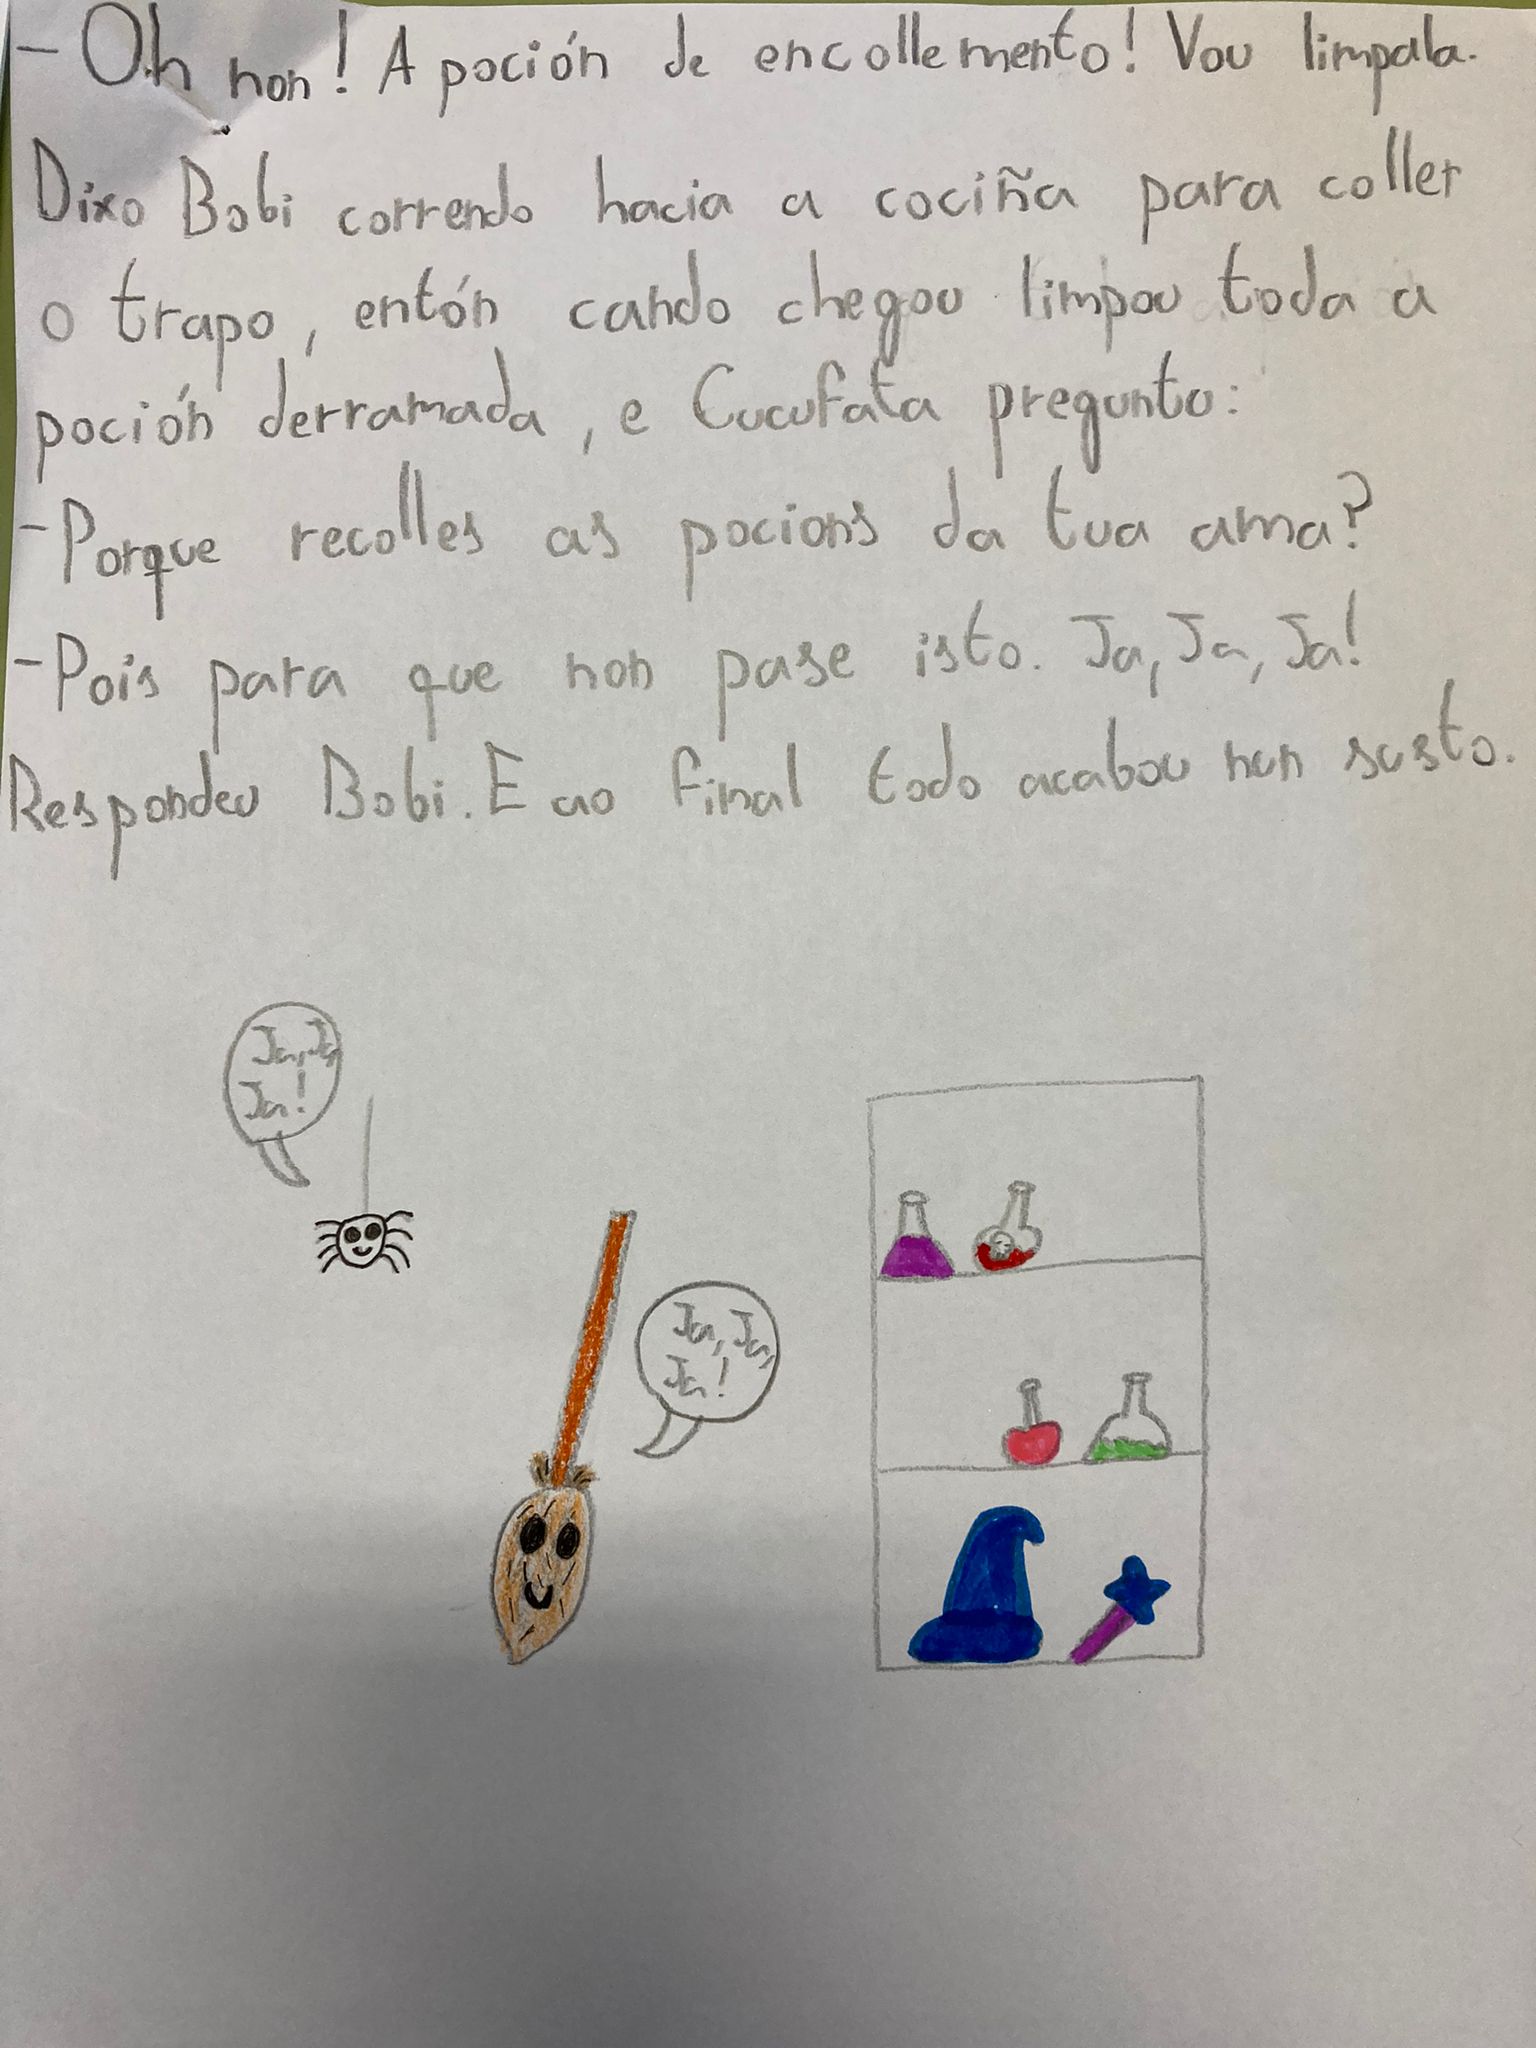 - Oh non! A poción de encollemento! Vou limpala.
Dixo Bobi correndo hacia a cociña para coller
o trapo, entón cando chegou limpou toda a
poción derramada, e Cucufata pregunto:
- Porque recolles as pocions da tua ama?
- Pois para que non pase isto. Ja, Ja, Ja!
Respondeu Bobi. E ao final todo acabou nun susto.
Ja, Ja,
Ja!
Ja, Ja,
Ja!